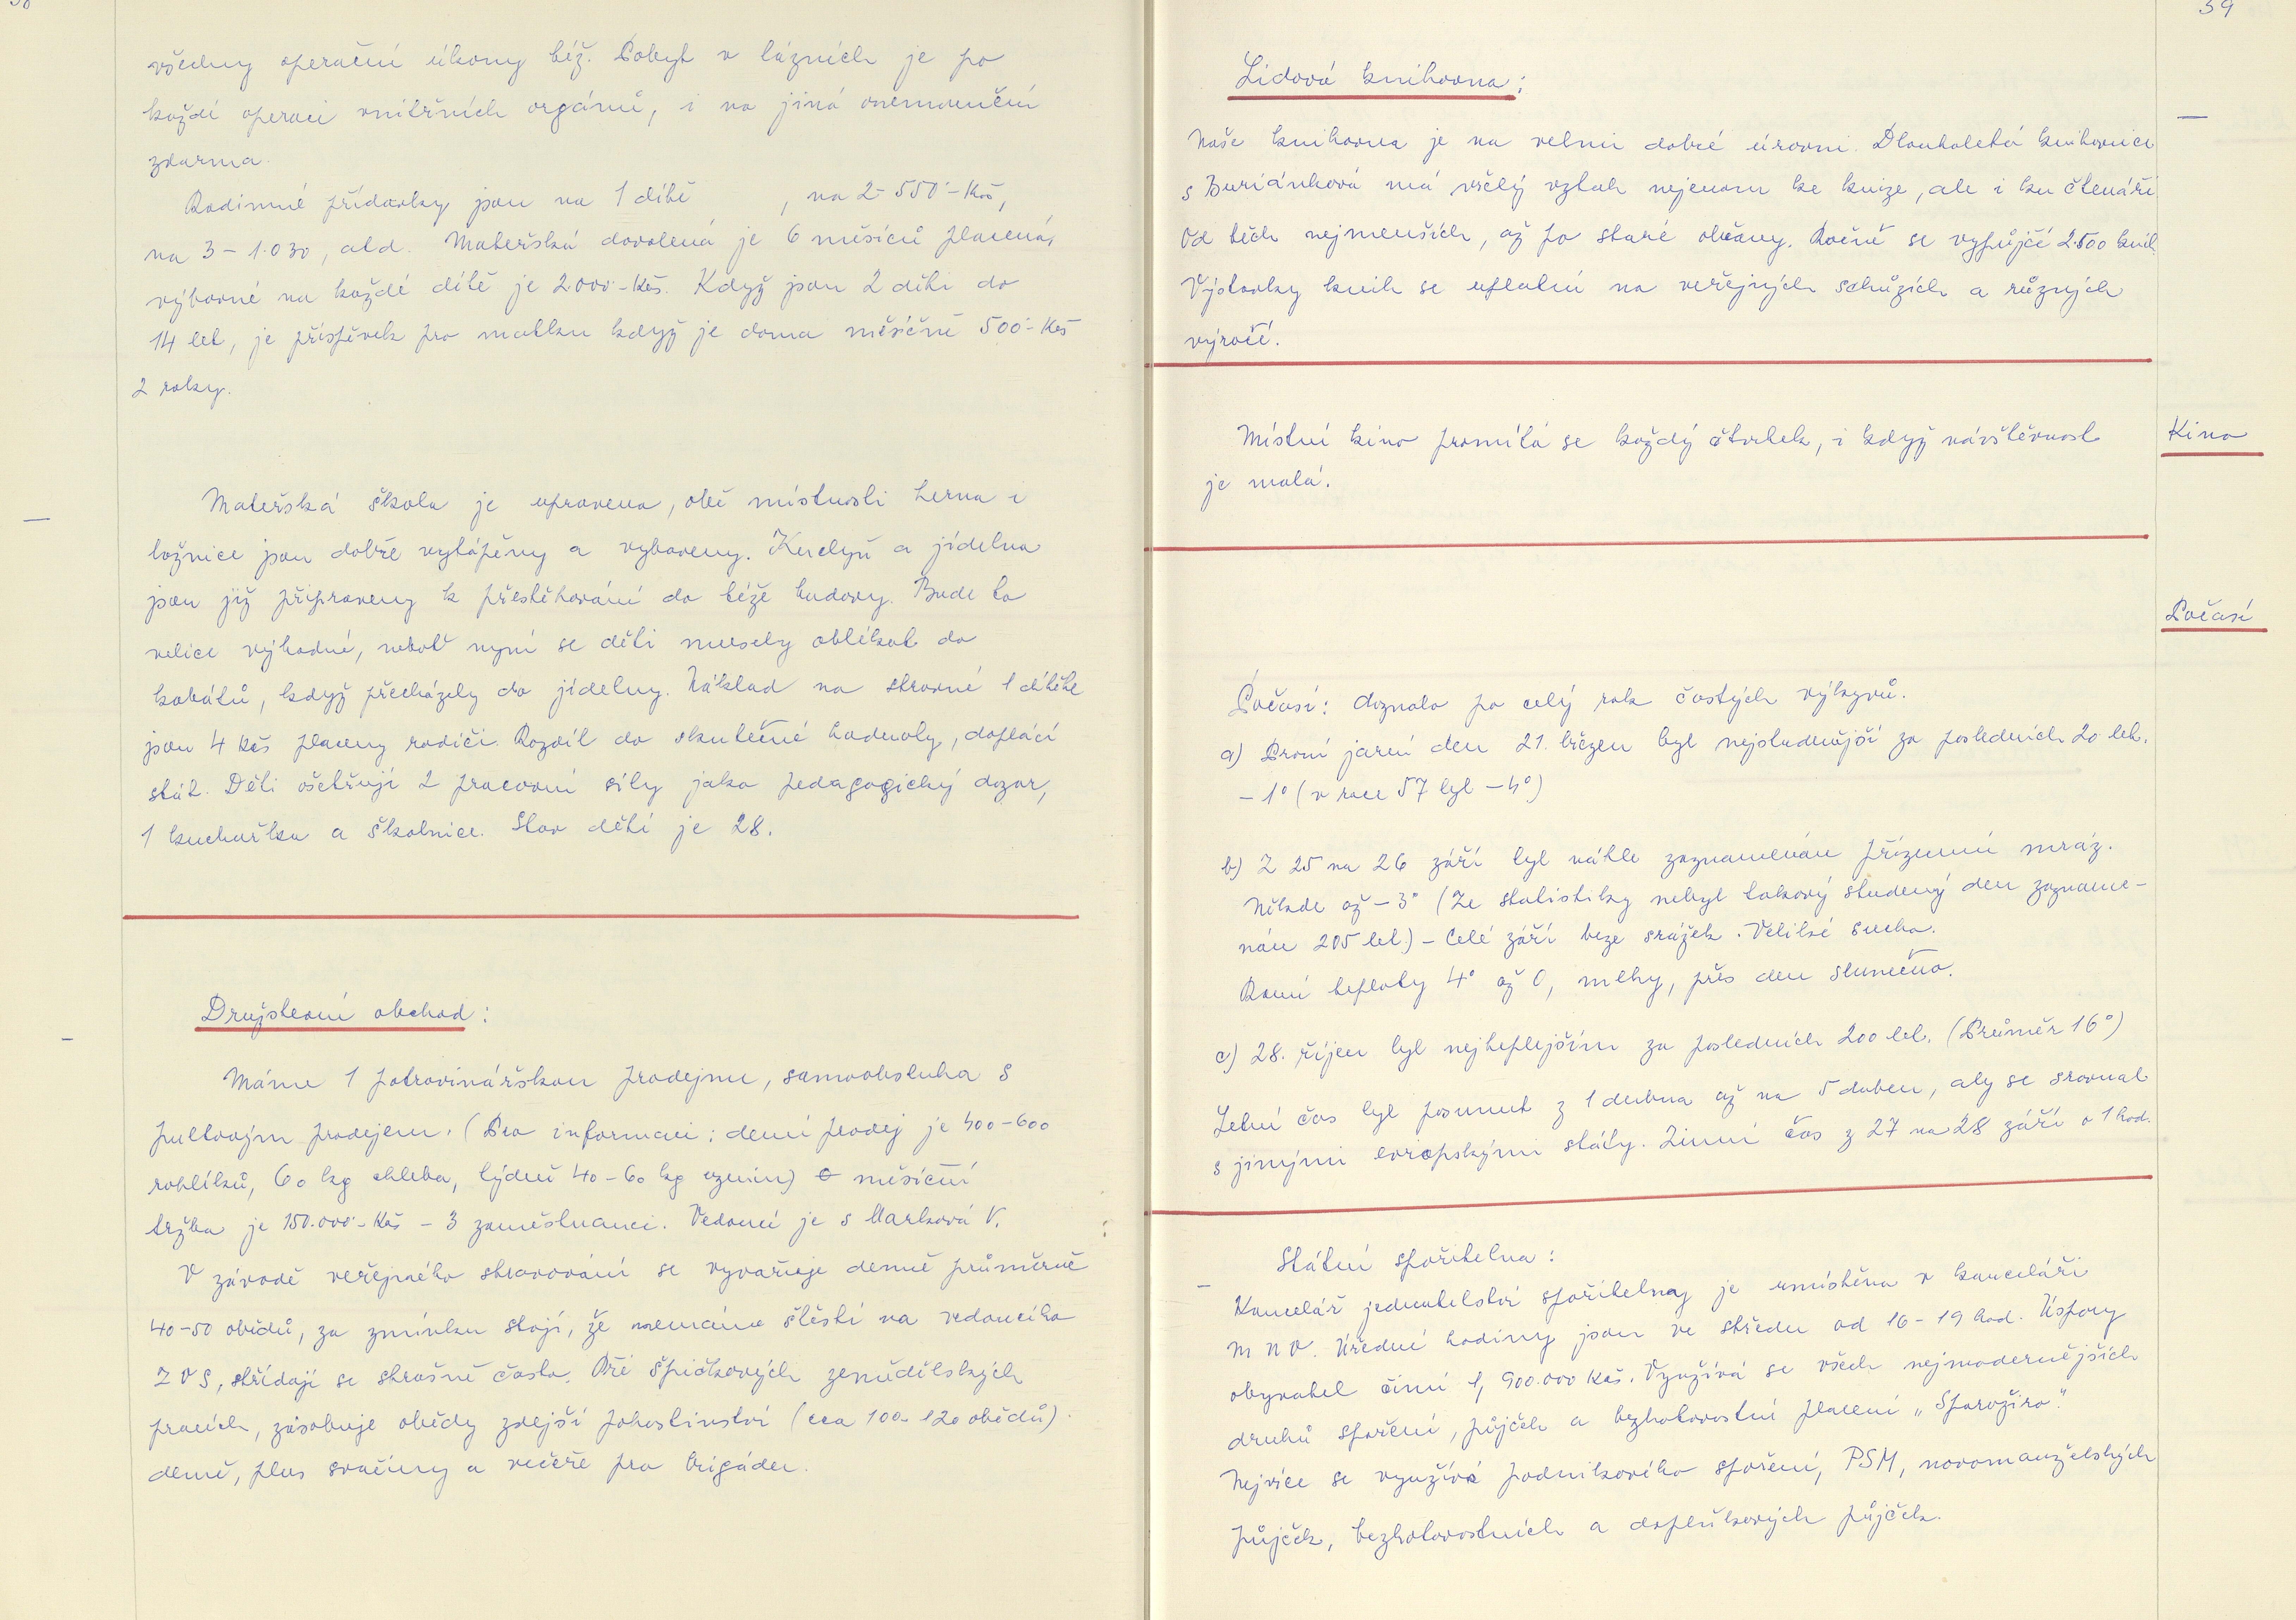 všechny operační úkony běž. Pobyt v lázních je po
každé operaci vnitřních orgánů, i na jiná onemocnění
zdarma.
Rodinné přídavky jsou na 1 dítě , na 2 - 550 - Kčs,
na 3 - 1.030, atd. Mateřská dovolená je 6 měsíců placená,
výbavné na každé dítě je 2000 - Kčs. Když jsou 2 děti do
14 let, je příspěvek pro matku když je doma měsíčně 500 - Kčs
2 roky.
Mateřská škola je upravena, obě místnosti herna i
ložnice jsou dobře vytápěny a vybaveny. Kuchyň a jídelna
jsou již připraveny k přestěhování do téže budovy. Bude to
velice výhodné, neboť nyní se děti musely oblékat do
kabátů, když přecházely do jídelny. Náklad na stravné 1 dítěte
jsou 4 Kčs placeny rodiči. Rozdíl do skutečné hodnoty, doplácí
stát. Děti ošetřují 2 pracovní síly jako pedagogický dozor,
1 kuchařka a školnice. Stav dětí je 28.
Družstevní obchod :
Máme 1 potravinářskou prodejnu, samoobsluha s
pultovým prodejem. (Pro informaci : denní prodej je 400-600
rohlíků, 60 kg chleba, týdně 40-60 kg uzenin) měsíční
tržba je 150.000 - Kčs - 3 zaměstnanci. Vedoucí je s Marková V.
V závodě veřejného stravování se vyvařuje denně průměrně
40-50 obědů, za zmínku stojí, že nemáme štěstí na vedoucího
ZVS, střídají se strašně často. Při špičkových zemědělských
pracích, zásobuje obědy zdejší pohostinství (cca 100-120 obědů)
denně, plus svačiny a večeře pro brigádu.
39
Lidová knihovna :
Naše knihovna je na velmi dobré úrovni. Dlouholetá knihovnice
s Buriánková má vřelý vztah nejenom ke knize, ale i ku čtenáři.
Od těch nejmenších, až po staré občany. Ročně se vypůjčí 2.500 knih.
Výstavky knih se uplatní na veřejných schůzích a různých
výročí.
Kino
Místní kino promítá se každý čtvrtek, i když návštěvnost
je malá.
Počasí
Počasí : doznalo po celý rok častých výkyvů.
a) První jarní den 21. březen byl nejstudenější za posledních 20 let.
- 1° (v roce 57 byl - 4°)
b) Z 25 na 26 září byl náhle zaznamenán přízemní mráz.
Někde až - 3° (Ze statistiky nebyl takový studený den zazname-
nán 205 let.) - Celé září beze srážek. Veliké sucho.
Ranní teploty 4° až 0, mlhy, přes den slunečno.
c) 28. říjen byl nejteplejším za posledních 200 let. (Průměr 16°)
Letní čas byl posunut z 1 dubna až na 5 duben, aby se srovnal
s jinými evropskými státy. Zimní čas z 27 na 28 září o 1 hod.
Státní spořitelna :
Kancelář jednatelství spořitelny je umístěna v kanceláři
MNV. Úřední hodiny jsou ve středu od 16 - 19 hod. Úspory
obyvatel činí 1, 900.000 Kčs. Využívá se všech nejmodernějších
druhů spoření, půjček a bezhotovostní placení „Sporožiro".
Nejvíce se využívá podnikového spoření, PSM, novomanželských
půjček, bezhotovostních a doplňkových půjček.